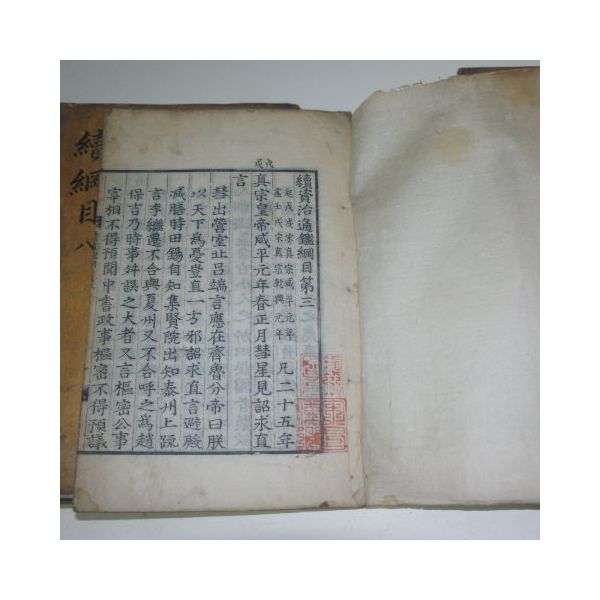 續資治通鑑綱目第三
起戊戌宋真宗咸平元年
盡壬戌宋真宗乾興元年
凡二十五年
戊戌
真宗皇帝咸平元年春正月彗星見詔求直
言
彗出營室北呂端言應在齊魯分帝曰朕
以天下爲憂豈直一方邪詔求直言避殿
减膳時田錫自知集賢院出知泰州上疏
言李繼遷不合與夏州又不合呼之爲趙
保吉乃時事舛誤之大者又言樞密公事
宰相不得預聞中書政事樞密不得預議
續綱目八